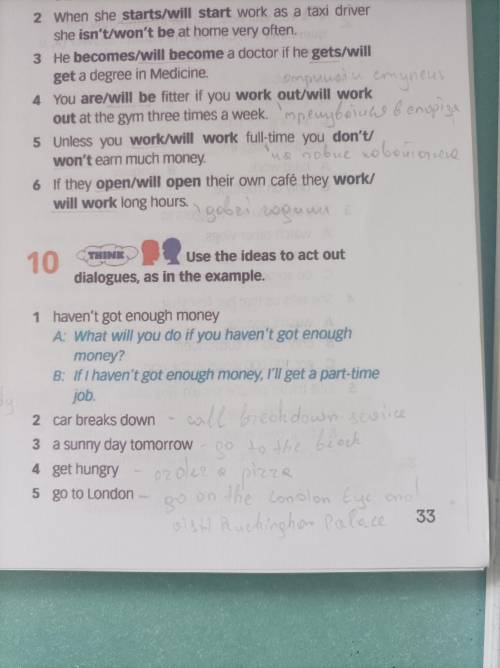 2 When she starts/will start work as a taxi driver
she isn't/won't be at home very often.
3 He becomes/will become a doctor if he gets/will
get a degree in Medicine.
отримати ступень
4 You are/will be fitter if you work out/will work
out at the gym three times a week.
5 Unless you work/will work full-time you don't/
won't earn much money.
на повне
6 If they open/will open their own café they work/
will work long hours.
довгі години
10 THINK Use the ideas to act out
dialogues, as in the example.
1 haven't got enough money
A: What will you do if you haven't got enough
money?
B: If I haven't got enough money, I'll get a part-time
job.
2 car breaks down - call breakdown service
3 a sunny day tomorrow - go to the
4 get hungry - order a pizza
5 go to London - go on the London Eye and
Palace
33